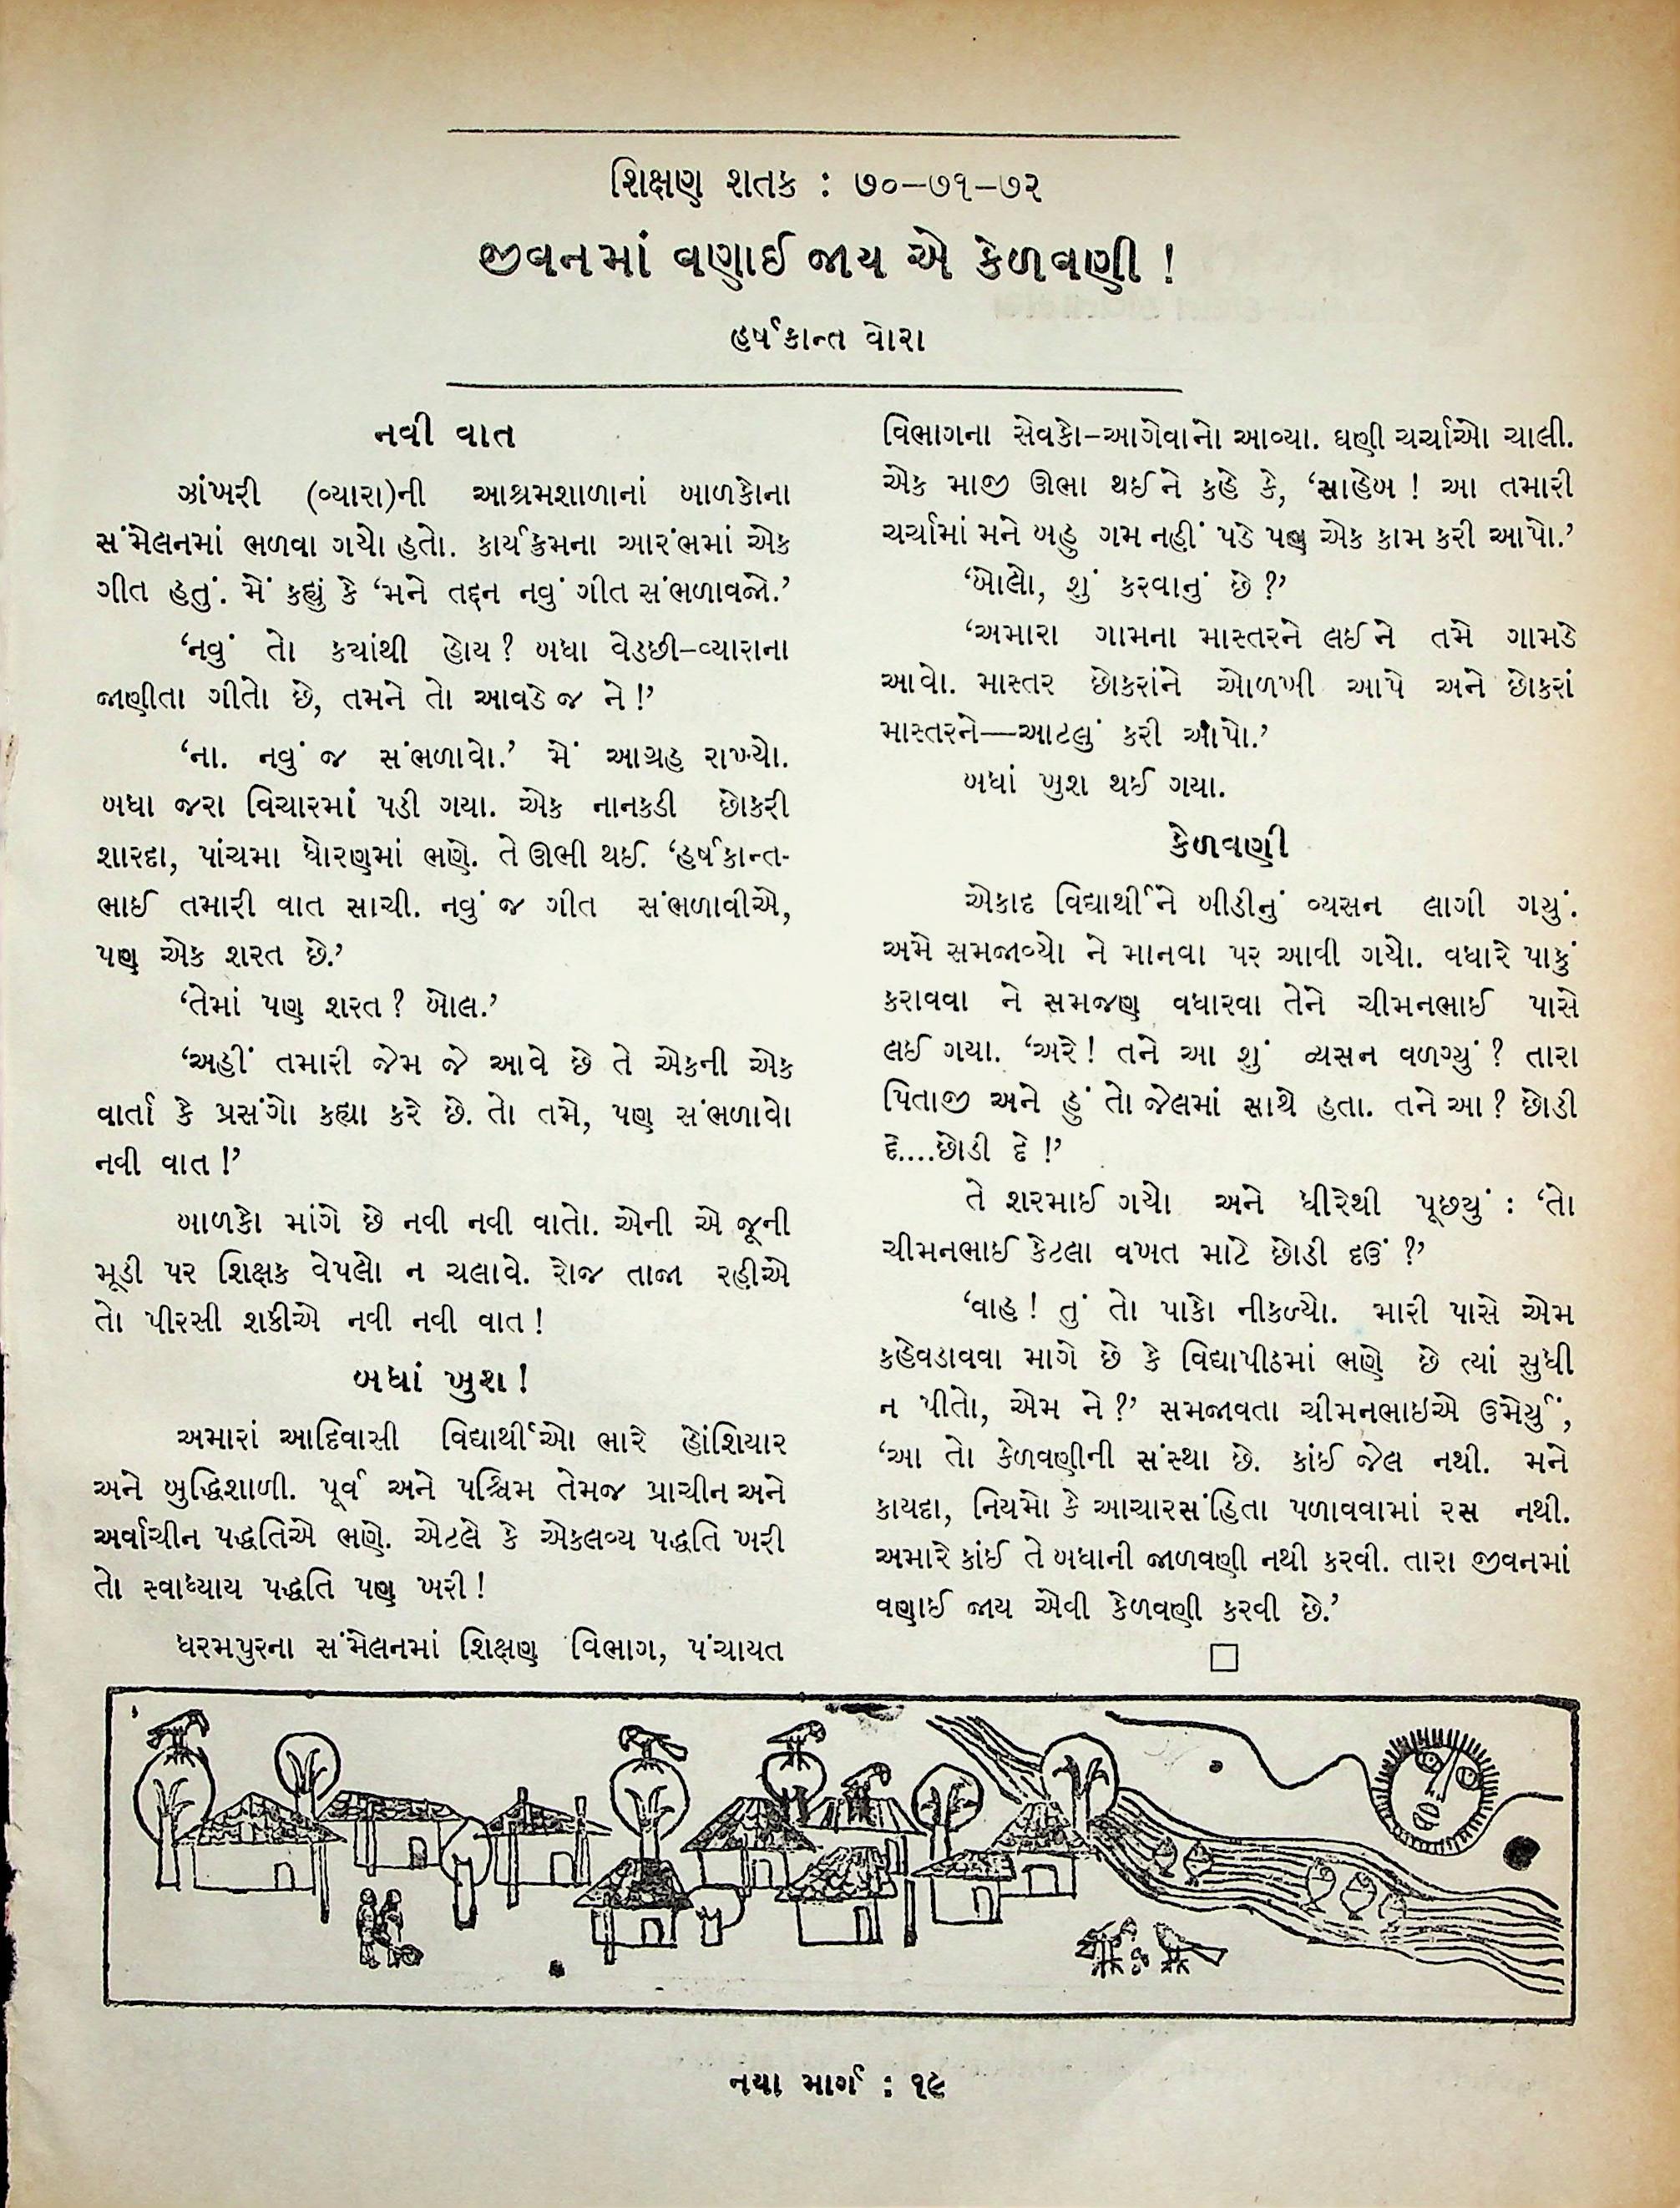 શિક્ષણ શતક : ૭૦–૭૧–૭૨
જીવનમાં વણાઈ જાય એ કેળવણી !
હર્ષકાન્ત વોરા
નવી વાત
ઝાંખરી (વ્યારા)ની આશ્રમશાળાનાં બાળકોના
સંમેલનમાં ભળવા ગયો હતો. કાર્યક્રમના આરંભમાં એક
ગીત હતું. મેં કહ્યું કે ‘મને તદ્દન નવું ગીત સંભળાવજો.’
‘નવું તો કયાંથી હોય? બધા વેડછી–વ્યારાના
જાણીતા ગીતો છે, તમને તો આવડે જ ને !’
‘ના. નવું જ સંભળાવો.’ મેં આગ્રહ રાખ્યો.
બધા જરા વિચારમાં પડી ગયા. એક નાનકડી છોકરી
શારદા, પાંચમા ધોરણમાં ભણે. તે ઊભી થઈ. ‘હર્ષકાન્ત-
ભાઈ તમારી વાત સાચી. નવું જ ગીત સંભળાવીએ,
પણ એક શરત છે.’
‘તેમાં પણ શરત? બોલ.’
‘અહીં તમારી જેમ જે આવે છે તે એકની એક
વાર્તા કે પ્રસંગો કહ્યા કરે છે. તો તમે, પણ સંભળાવો
નવી વાત !’
બાળકો માંગે છે નવી નવી વાતો. એની એ જૂની
મૂડી પર શિક્ષક વેપલો ન ચલાવે. રોજ તાજા રહીએ
તો પીરસી શકીએ નવી નવી વાત !
બધાં ખુશ !
અમારાં આદિવાસી વિદ્યાર્થીઓ ભારે હોંશિયાર
અને બુદ્ધિશાળી. પૂર્વ અને પશ્ચિમ તેમજ પ્રાચીન અને
અર્વાચીન પદ્ધતિએ ભણે. એટલે કે એકલવ્ય પદ્ધતિ ખરી
તો સ્વાધ્યાય પદ્ધતિ પણ ખરી !
ધરમપુરના સંમેલનમાં શિક્ષણ વિભાગ, પંચાયત
વિભાગના સેવકો–આગેવાનો આવ્યા. ઘણી ચર્ચાઓ ચાલી.
એક માજી ઊભા થઈને કહે કે, ‘સાહેબ ! આ તમારી
ચર્ચામાં મને બહુ ગમ નહીં પડે પણ એક કામ કરી આપો.’
‘બોલો, શું કરવાનું છે ?’
‘અમારા ગામના માસ્તરને લઈને તમે ગામડે
આવો. માસ્તર છોકરાંને ઓળખી આપે અને છોકરાં
માસ્તરને—આટલું કરી આપો.’
બધાં ખુશ થઈ ગયા.
કેળવણી
એકાદ વિદ્યાર્થીને બીડીનું વ્યસન લાગી ગયું.
અમે સમજાવ્યો ને માનવા પર આવી ગયો. વધારે પાકું
કરાવવા ને સમજણ વધારવા તેને ચીમનભાઈ પાસે
લઈ ગયા. ‘અરે ! તને આ શું વ્યસન વળગ્યું ? તારા
પિતાજી અને હું તો જેલમાં સાથે હતા. તને આ ? છોડી
દે....છોડી દે !’
તે શરમાઈ ગયો અને ધીરેથી પૂછયું : ‘તો
ચીમનભાઈ કેટલા વખત માટે છોડી દઉં ?’
‘વાહ ! તું તો પાકો નીકળ્યો. મારી પાસે એમ
કહેવડાવવા માગે છે કે વિદ્યાપીઠમાં ભણે છે ત્યાં સુધી
ન પીતો, એમ ને ?’ સમજાવતા ચીમનભાઇએ ઉમેર્યું,
‘આ તો કેળવણીની સંસ્થા છે. કાંઈ જેલ નથી. મને
કાયદા, નિયમો કે આચારસંહિતા પળાવવામાં રસ નથી.
અમારે કાંઈ તે બધાની જાળવણી નથી કરવી. તારા જીવનમાં
વણાઈ જાય એવી કેળવણી કરવી છે.’
નયા માર્ગ : ૧૯